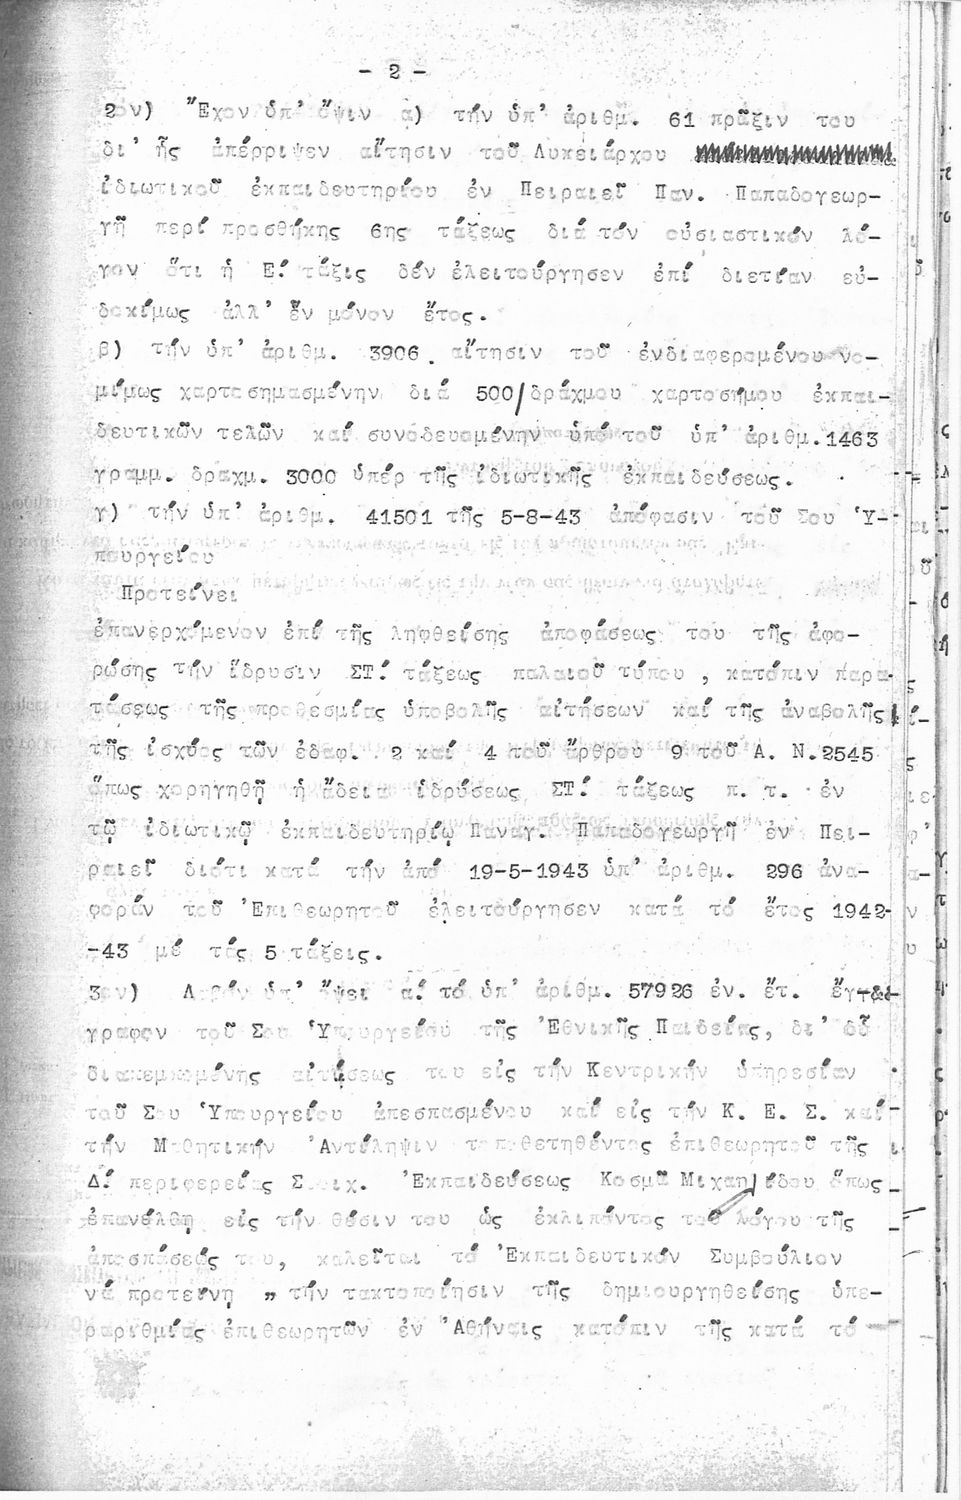 - 2 -
2ον) Ἔχον ὑπ' ὄψιν α) τήν ὑπ' ἀριθμ. 61 πρᾶξιν του
δι' ἧς ἀπέρριψεν αἴτησιν τοῦ Λυκειάρχου
ἰδιωτικοῦ ἐκπαιδευτηρίου ἐν Πειραιεῖ Παν. Παπαδογεωρ-
γῆ περί προσθήκης 6ης τάξεως διά τόν οὐσιαστικόν λό-
γον ὅτι ἡ Ε΄ τάξις δέν ἐλειτούργησεν ἐπί διετίαν εὐ-
δοκίμως ἀλλ' ἕν μόνον ἔτος.
β) τήν ὑπ' ἀριθμ. 3906 αἴτησιν τοῦ ἐνδιαφερομένου νο-
μίμως χαρτοσημασμένην διά 500/δράχμου χαρτοσήμου ἐκπαι-
δευτικῶν τελῶν καί συνοδευομένην ὑπό τοῦ ὑπ' ἀριθμ.1463
γραμμ. δραχμ. 3000 ὑπέρ τῆς ἰδιωτικῆς ἐκπαιδεύσεως.
γ) τήν ὑπ' ἀριθμ. 41501 τῆς 5-8-43 ἀπόφασιν τοῦ Σου Ὑ-
πουργείου
Προτείνει
ἐπανερχόμενον ἐπί τῆς ληφθείσης ἀποφάσεως του τῆς ἀφο-
ρώσης τήν ἵδρυσιν ΣΤ΄ τάξεως παλαιοῦ τύπου , κατόπιν παρα-
τάσεως τῆς προθεσμίας ὑποβολῆς αἰτήσεων καί τῆς ἀναβολῆς
τῆς ἰσχύος τῶν ἐδαφ. 2 καί 4 τοῦ ἄρθρου 9 τοῦ Α. Ν.2545
ὅπως χορηγηθῇ ἡ ἄδεια ἱδρύσεως ΣΤ΄ τάξεως π. τ. ἐν
τῷ ἰδιωτικῷ ἐκπαιδευτηρίῳ Παναγ. Παπαδογεωργῆ ἐν Πει-
ραιεῖ διότι κατά τήν ἀπό 19-5-1943 ὑπ' ἀριθμ. 296 ἀνα-
φοράν τοῦ Ἐπιθεωρητοῦ ἐλειτούργησεν κατά τό ἔτος 1942-
-43 μέ τάς 5 τάξεις.
3ον) Λαβόν ὑπ' ὄψει α΄ τό ὑπ' ἀριθμ. 57926 ἐν. ἔτ. ἔγ-
γραφον τοῦ Σου Ὑπουργείου τῆς Ἐθνικῆς Παιδείας, δι' οὗ
διαπεμπομένης αἰτήσεως του εἰς τήν Κεντρικήν ὑπηρεσίαν
τοῦ Σου Ὑπουργείου ἀπεσπασμένου καί εἰς τήν Κ. Ε. Σ. καί
τήν Μαθητικήν Ἀντίληψιν τοποθετηθέντος ἐπιθεωρητοῦ τῆς
Δ΄ περιφερείας Στοιχ. Ἐκπαιδεύσεως Κοσμᾶ Μιχαηλίδου ὅπως
ἐπανέλθῃ εἰς τήν θέσιν του ὡς ἐκλιπόντος τοῦ λόγου τῆς
ἀποσπάσεώς του, καλεῖται τό Ἐκπαιδευτικόν Συμβούλιον
νά προτείνῃ " τήν τακτοποίησιν τῆς δημιουργηθείσης ὑπε-
ραριθμίας ἐπιθεωρητῶν ἐν Ἀθήναις κατόπιν τῆς κατά τό